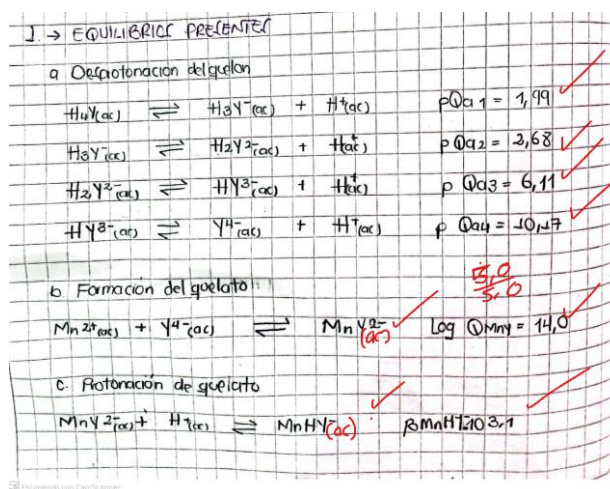 1. → EQUILIBRIOS PRESENTES
a Desprotonacion del quelon
H4Y(ac) ⇌ H3Y-(ac) + H+(ac) pQa1 = 1,99
H3Y-(ac) ⇌ H2Y2-(ac) + H+(ac) pQa2 = 2,68
H2Y2-(ac) ⇌ HY3-(ac) + H+(ac) pQa3 = 6,11
HY3-(ac) ⇌ Y4-(ac) + H+(ac) pQa4 = 10,17
5,0
5,0
b. Formación del quelato
Mn2+(ac) + Y4-(ac) ⇌ MnY2-(ac) Log QMnY = 14,0
c. Protonación de quelato
MnY2-(ac) + H+(ac) ⇌ MnHY-(ac) βMnHY=103,1
Escaneado con CamScanner